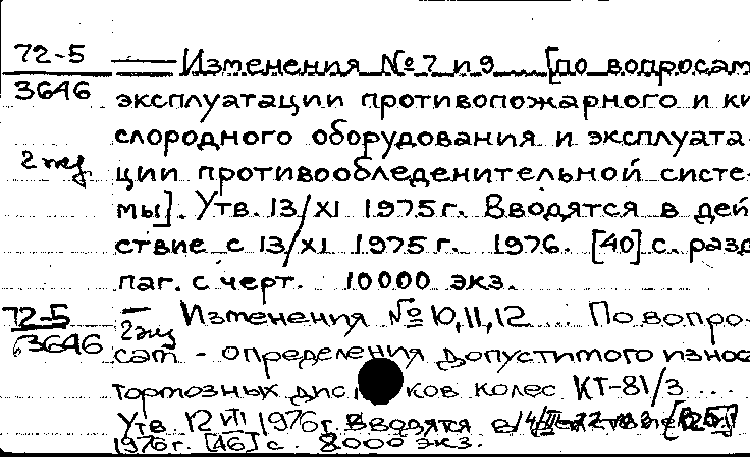 72-5 — Изменения № 7 и 9 ... [по вопросам
3646 эксплуатации противопожарного и ки
слородного оборудования и эксплуата-
2 экз ции противообледенительной систе-
мы]. Утв. 13/XI 1975 г. Вводятся в дей
ствие с 13/XI 1975 г. 1976. [40] с. разд
паг. с черт. 10000 экз.
72-5 — Изменения № 10, 11, 12 ... По вопро-
3646 2 экз сам - определения допустимого износ
тормозных дис ков колес КТ-81/3 ...
Утв. 12 VII 1976 г. Вводятся в
1976 г. [46] с. 8000 экз.